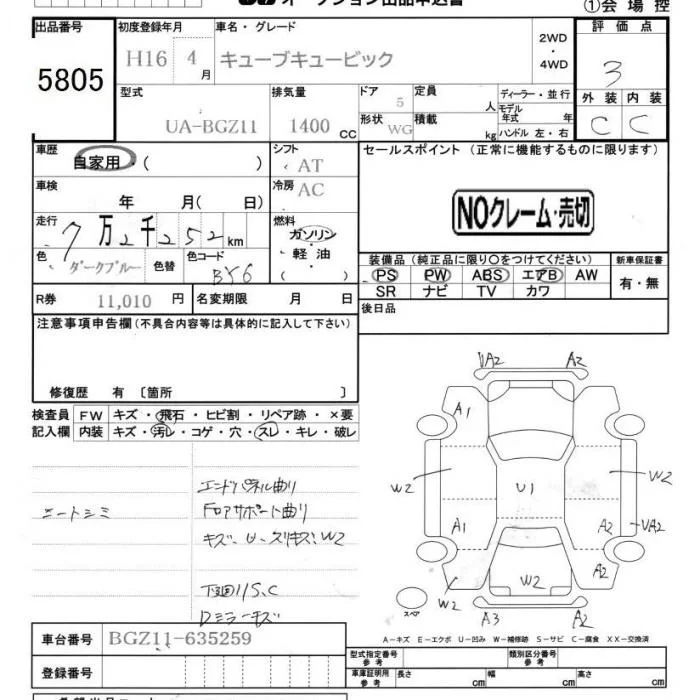 オークション出品申込書
①会場控
出品番号 初度登録年月 車名・グレード 評価点
5805 H16 4月 キューブキュービック 2WD・4WD 3
型式 排気量 ドア 定員 ディーラー・並行 外装 内装
UA-BGZ11 1400cc 5 人 モデル年式 年 C C
形状 WG 積載 kg ハンドル 左・右
車歴 自家用・( ) シフト AT セールスポイント (正常に機能するものに限ります)
車検 年 月( 日) 冷房 AC
NOクレーム・売切
走行 7万2千252km 燃料 ガソリン・軽油・( )
色 ダークブルー 色替 色コード BY6
装備品(純正品に限り〇をつけてください) 新車保証書
PS PW ABS エアB AW 有・無
SR ナビ TV カワ
R券 11,010円 名変期限 月 日 後日品
注意事項申告欄(不具合内容等は具体的に記入して下さい)
修復歴 有 〔箇所 〕
検査員 FW キズ・飛石・ヒビ割・リペア跡・×要
記入欄 内装 キズ・汚レ・コゲ・穴・スレ・キレ・破レ
VA2 A2
A1
W2 U1 W2
A1 A2 VA2
W2 W2 A2
A3 A2
スペア
エンドパネル曲り
シートシミ Fロアサポート曲り
キズ、U、スリキズ、W2
下回りS、C
Dミラーキズ
A-キズ E-エクボ U-凹み W-補修跡 S-サビ C-腐食 XX-交換済
車台番号 BGZ11-635259
型式指定番号 参考 類別区分番号 参考
登録番号 車庫証明用 参考 長さ cm 幅 cm 高さ cm